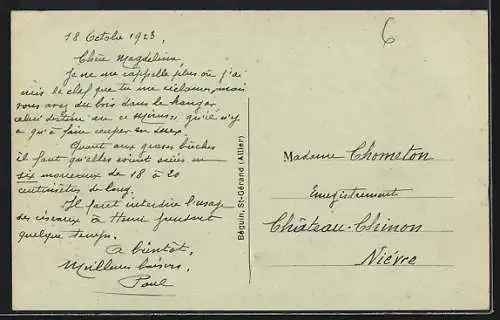 18 Octobre 1923,
6
Chère Magdeleine,
Je ne me rappelle plus où j'ai
mis la clef que tu me réclames, mais
vous avez du bois dans le hangar
celui destiné au ce séjour, qu'il n'y
a qu'à faire couper en deux.
Quant aux grosses bûches
il faut qu'elles soient sciées en
six morceaux de 18 à 20
centimètres de long.
Il faut interdire l'usage
des ciseaux à Henri pendant
quelque temps.
A bientôt,
Meilleurs baisers.
Paul
Béguin, St-Gérand (Allier)
Madame Chometon
Enregistrement
Château-Chinon
Nièvre